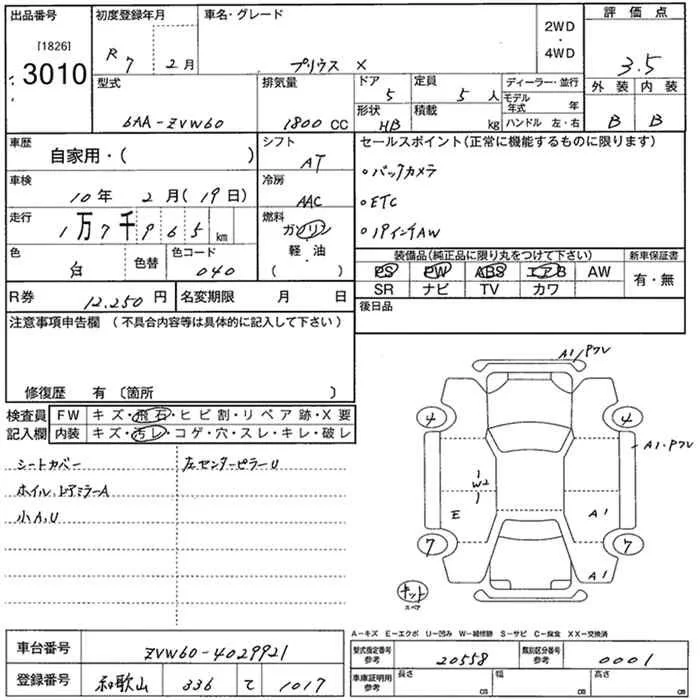 出品番号 初度登録年月 車名・グレード 2WD・4WD 評価点
[1826]
3010 R7 2月 プリウス X 3.5
型式 排気量 ドア 定員 ディーラー・並行 外装 内装
6AA-ZVW60 1800 CC 5 5人 モデル年式 年 B B
形状 積載 ハンドル 左・右
HB kg
車歴 シフト セールスポイント(正常に機能するものに限ります)
自家用・( ) AT
・バックカメラ
車検 冷房
10年 2月(19日) AAC
・ETC
走行 燃料
1万7千965km ガソリン
・19インチAW
軽・油
( )
色 色替 色コード 装備品(純正品に限り丸をつけて下さい) 新車保証書
白 040 PS PW ABS エアB AW 有・無
SR ナビ TV カワ
R券 12,250円 名変期限 月 日
後日品
注意事項申告欄 (不具合内容等は具体的に記入して下さい)
修復歴 有 〔箇所 〕
検査員 FW キズ・飛石・ヒビ割・リペア跡・X要
記入欄 内装 キズ・汚レ・コゲ・穴・スレ・キレ・破レ
シートカバー 左センターピラーU
ホイル、ドアミラーA
小A,U
A1,Pワレ
4 4
A1・Pワレ
W2
E A1
7 7
A1
キット
スペア
A-キズ E-エクボ U-凹み W-補修跡 S-サビ C-腐食 XX-交換済
車台番号 ZVW60-4029921
型式指定番号 参考 20558 類別区分番号 参考 0001
登録番号 和歌山 336 て 1017
車庫証明用 参考 長さ cm 幅 cm 高さ cm